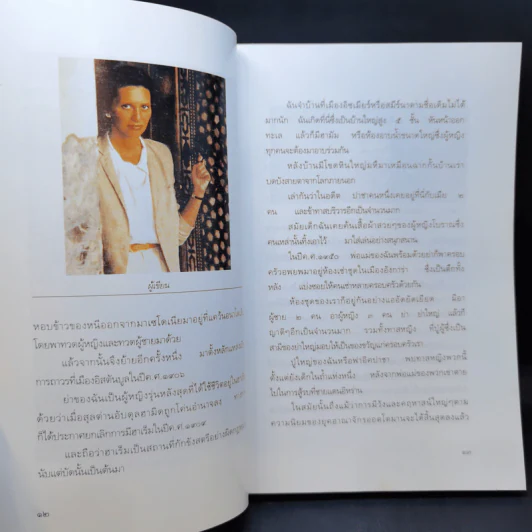 ผู้เขียน
หอบข้าวของหนีออกจากมาเซโดเนียมาอยู่ที่แคว้นอนาโตเลีย
โดยพาทวดผู้หญิงและทวดผู้ชายมาด้วย
แล้วจากนั้นจึงย้ายอีกครั้งหนึ่ง มาตั้งหลักแหล่ง
การถาวรที่เมืองอิสตันบูลในปีค.ศ.๑๙๐๖
ย่าของฉันเป็นผู้หญิงรุ่นหลังสุดที่ได้ใช้ชีวิตอยู่ใน
ด้วยว่าเมื่อสุลต่านอับดุลฮามิดถูกโค่นอำนาจลง
ก็ได้ประกาศยกเลิกการมีฮาเร็มในปีค.ศ.๑๙๐๙
และถือว่าฮาเร็มเป็นสถานที่กักขังสตรีอย่างผิดกฎหมาย
นับแต่บัดนั้นเป็นต้นมา
๑๒
ฉันจำบ้านที่เมืองอิซเมียร์หรือสมีร์นาตามชื่อเดิมไม่ได้
มากนัก ฉันเกิดที่นี่ซึ่งเป็นบ้านใหญ่สูง ๕ ชั้น หันหน้าออก
ทะเล แล้วก็มีฮามัม หรือห้องอาบน้ำขนาดใหญ่ซึ่งผู้หญิง
ทุกคนจะต้องมาอาบร่วมกัน
หลังบ้านมีโขดหินใหญ่มหึมาเหมือนฉากกั้นบ้านเรา
บดบังสายตาจากโลกภายนอก
เล่ากันว่าในอดีต ปาชาคนหนึ่งเคยอยู่ที่นี่กับเมีย ๒
คน และข้าทาสบริวารอีกเป็นจำนวนมาก
สมัยเด็กฉันเคยค้นเสื้อผ้าสวยๆของผู้หญิงโบราณซึ่ง
คนเหล่านั้นทิ้งเอาไว้ มาใส่เล่นอย่างสนุกสนาน
ในปีค.ศ.๑๙๕๐ พ่อแม่ของฉันพร้อมด้วยย่าก็พาครอบ
ครัวอพยพมาอยู่ห้องเช่าชุดในเมืองอังการา ซึ่งเป็นตึกทั้ง
หลัง แบ่งซอยให้คนเช่าหลายครอบครัวด้วยกัน
ห้องชุดของเราก็อยู่กันอย่างแออัดยัดเยียด มีอา
ผู้ชาย ๒ คน อาผู้หญิง ๓ คน ยา ย่าใหญ่ แล้วก็
ญาติๆอีกเป็นจำนวนมาก รวมทั้งทาสหญิง ที่ปู่ผู้ซึ่งเป็น
สามีของย่าใหญ่มอบให้เป็นของขวัญแก่ครอบครัวเรา
ปู่ใหญ่ของฉันหรือฟาอิคปาชา พบชาวหญิงพวกนี้
ตั้งแต่ยังเด็กในถ้ำแห่งหนึ่ง หลังจากพ่อแม่ของพวกเขาตาย
ไปในการสู้รบที่ชายแดนอิหร่าน
ในสมัยนั้นถึงแม้ว่าการมีวังและคฤหาสน์ใหญ่ๆตาม
ความนิยมของยุคอาณาจักรออตโตมานจะได้สิ้นสุดลงแล้ว
๑๓